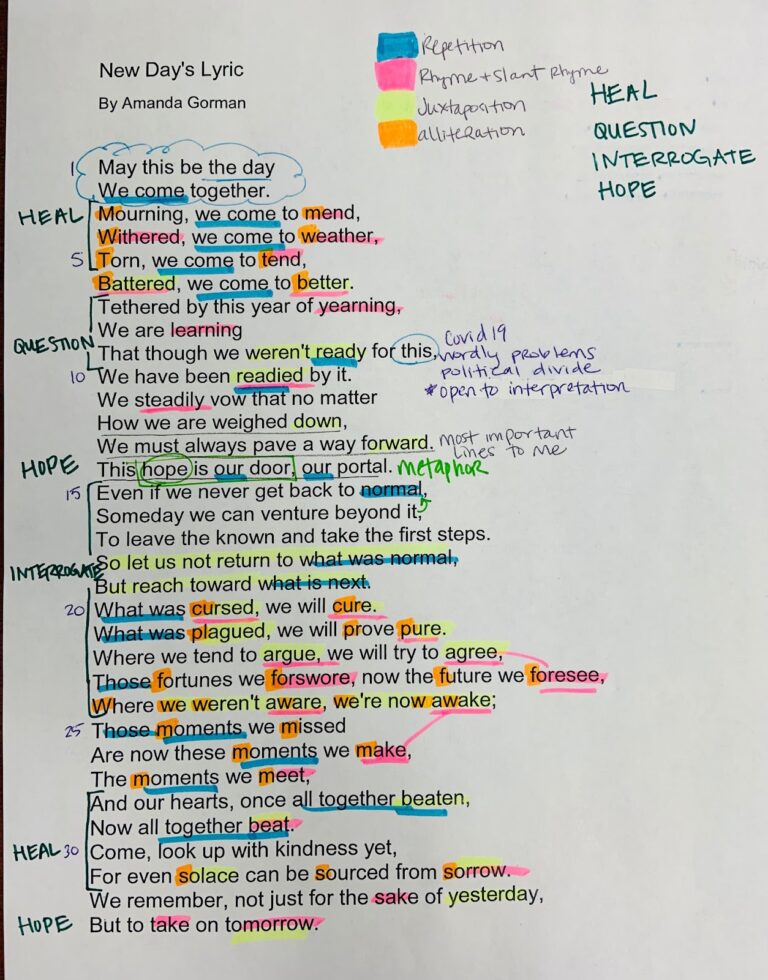 New Day's Lyric
By Amanda Gorman
Repetition
Rhyme + Slant Rhyme
Juxtaposition
alliteration
HEAL
QUESTION
INTERROGATE
HOPE
1 May this be the day
We come together.
HEAL Mourning, we come to mend,
Withered, we come to weather,
5 Torn, we come to tend,
Battered, we come to better.
Tethered by this year of yearning,
We are learning
QUESTION That though we weren't ready for this,
10 We have been readied by it.
Covid 19
wordly problems
political divide
*open to interpretation
We steadily vow that no matter
How we are weighed down,
We must always pave a way forward.
most important
lines to me
HOPE This hope is our door, our portal. metaphor
15 Even if we never get back to normal,
Someday we can venture beyond it,
To leave the known and take the first steps.
INTERROGATE So let us not return to what was normal,
But reach toward what is next.
20 What was cursed, we will cure.
What was plagued, we will prove pure.
Where we tend to argue, we will try to agree,
Those fortunes we forswore, now the future we foresee,
Where we weren't aware, we're now awake;
25 Those moments we missed
Are now these moments we make,
The moments we meet,
And our hearts, once all together beaten,
Now all together beat.
HEAL 30 Come, look up with kindness yet,
For even solace can be sourced from sorrow.
We remember, not just for the sake of yesterday,
HOPE But to take on tomorrow.